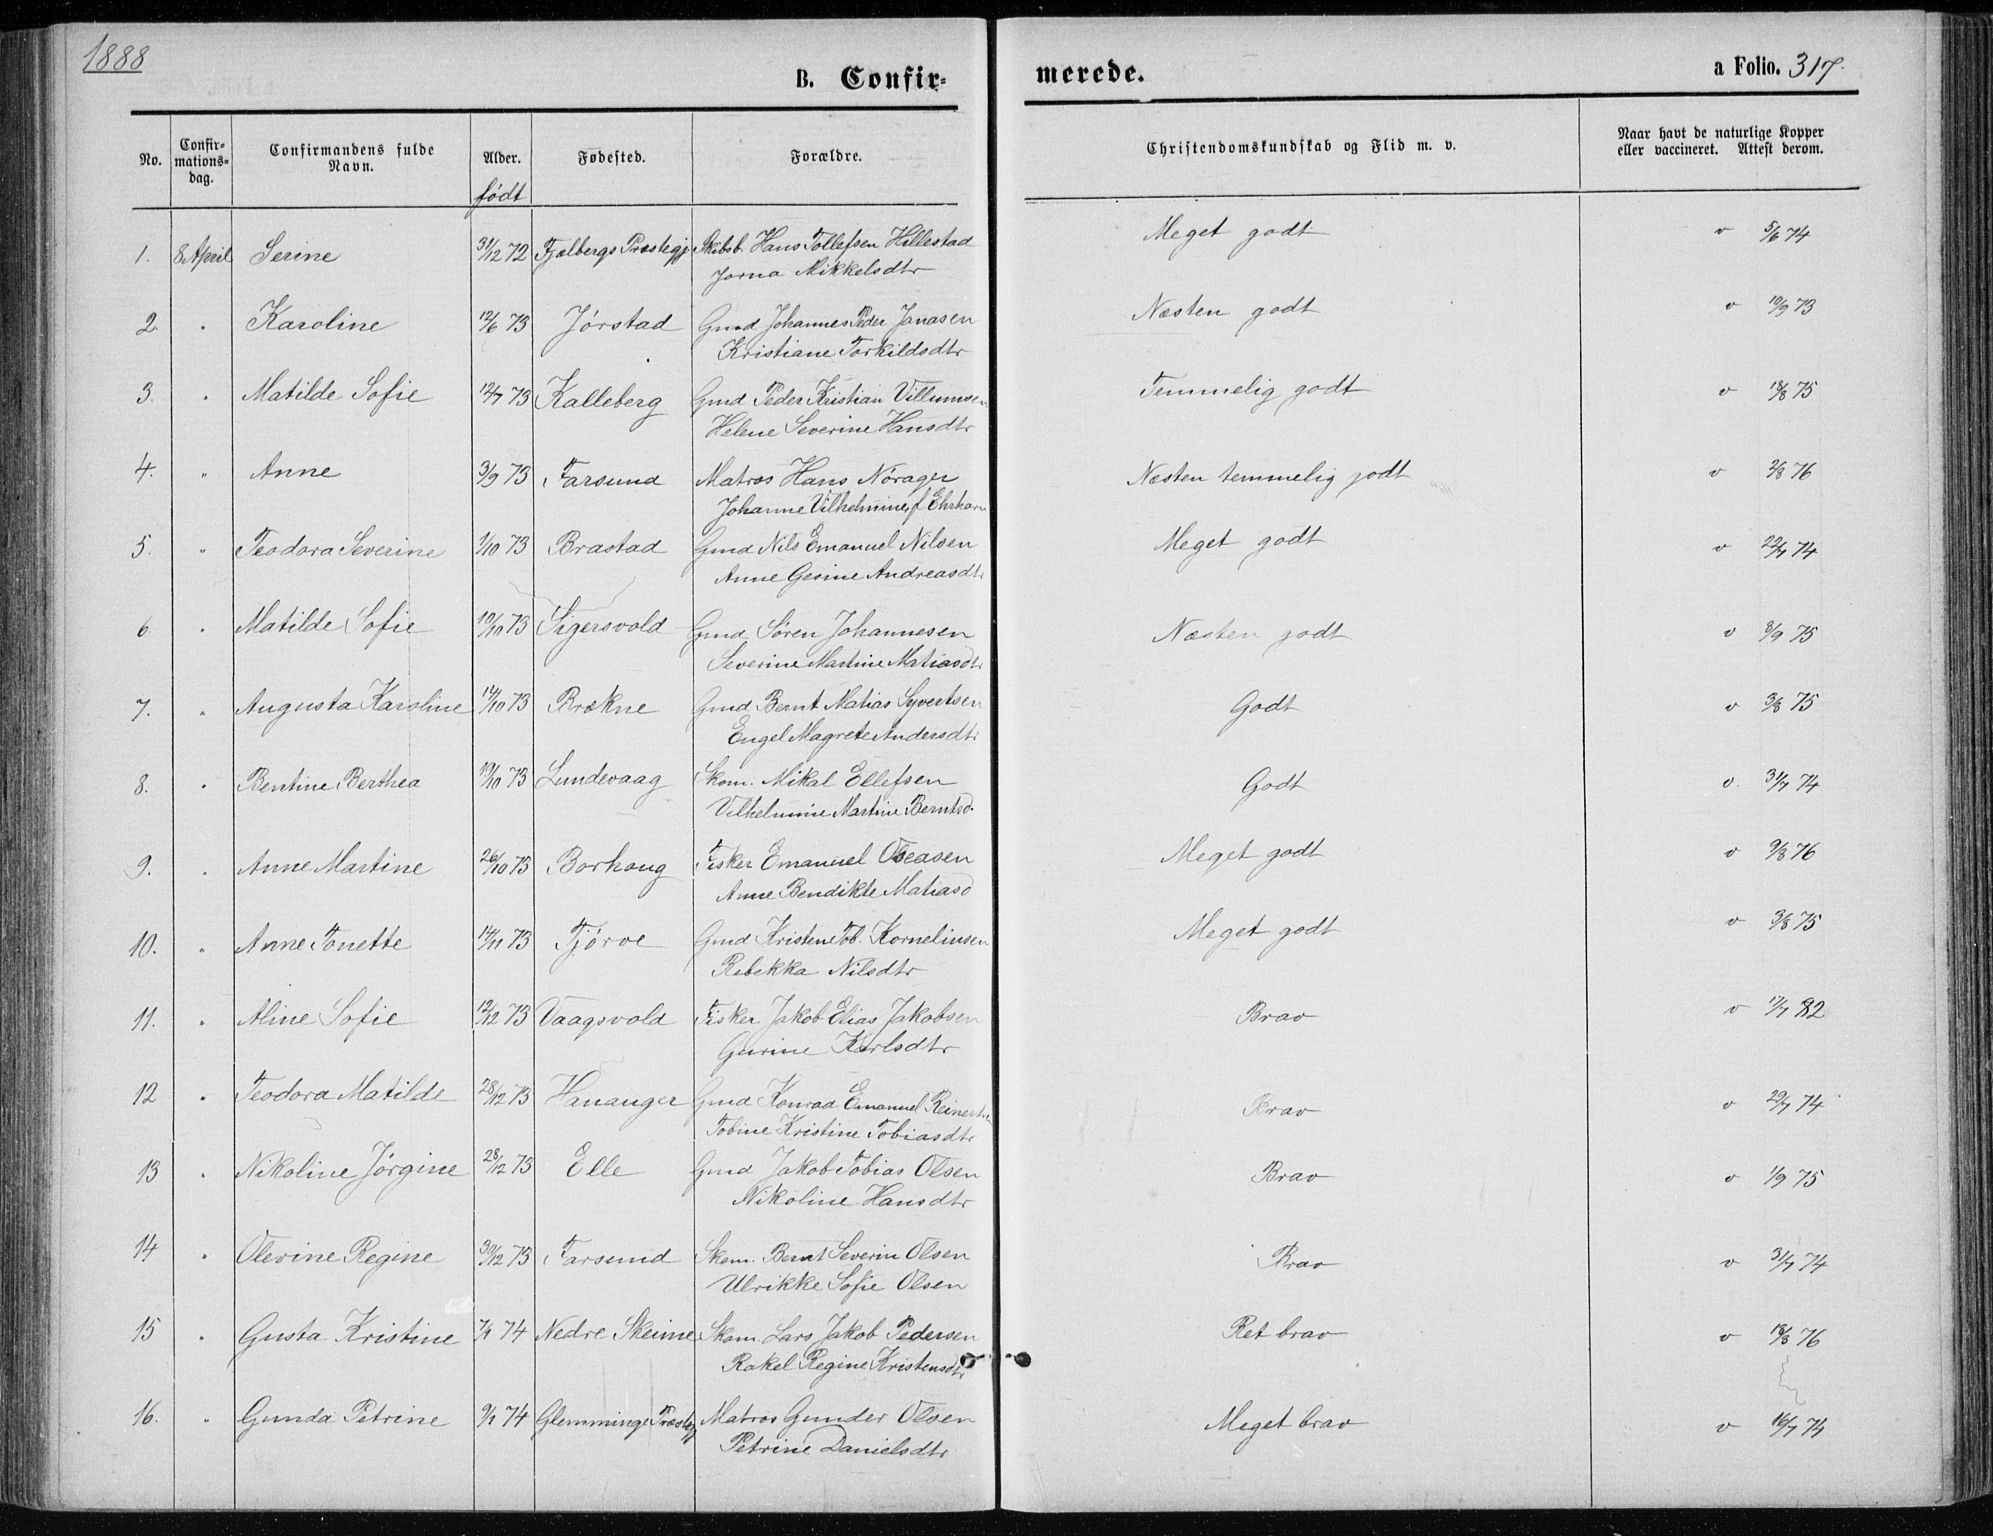 1888
B. Confir-
merede.
a Folio. 317.
No. Confir-mations-dag. Confirmandens fulde Navn. Alder. født Fødested. Forældre. Christendomskundskab og Flid m. v. Naar havt de naturlige Kopper eller vaccineret. Attest derom.
1. 8 April Serine 31/12 72 Fjælbergs Præstegj Skibsb. Hans Tollefsen Hillestad Meget godt v 5/6 74
Jorna Mikkelsdtr
2 " Karoline 12/6 73 Jørstad Gmd Johannes Peder Janasen Næsten godt v 10/9 73
Kristiane Torkildsdtr
3. " Matilde Sofie 12/7 73 Kalleberg Gmd Peder Kristian Villumsen Temmelig godt v 18/8 75
Helene Severine Hansdtr
4. " Anne 3/9 73 Farsund Matros Hans Nørager Næsten temmelig godt v 2/8 76
Johanne Vilhelmine f Ehrhorn
5. " Teodora Severine 1/10 73 Brastad Gmd Nils Emanuel Nilsen Meget godt v 22/7 74
Anne Gesine Andreasdtr
6. " Matilde Sofie 10/10 73 Sigersvold Gmd Søren Johannesen Næsten godt v 8/9 75
Severine Martine Matiasdtr
7. " Augusta Karoline 14/10 73 Brækne Gmd Bernt Matias Syvertsen Godt v 3/8 75
Engel Magrete Andersdtr
8. " Bentine Berthea 19/10 73 Lundevaag Skom. Mikal Ellefsen Godt v. 31/7 74
Vilhelmine Martine Berntsd.
9. " Anne Martine 26/10 73 Borhoug Fisker Emanuel Oseasen Meget godt v 9/8 76
Anne Bendikte Matiasd
10. " Anne Tonette 14/11 73 Tjørve Gmd Kristen Tob. Korneliusen Meget godt v 3/8 75
Rebekka Nilsdtr
11. " Aline Sofie 12/12 73 Vaagsvold Fisker Jakob Elias Jakobsen Brav v 17/7 82
Gurine Karlsdtr
12 " Teodora Matilde 28/12 73 Hananger Gmd Konrad Emanuel Reinertsn Brav v 22/7 74
Tobine Kristine Tobiasdtr
13 " Nikoline Jørgine 28/12 73 Elle Gmd Jakob Tobias Olsen Brav v 1/9 75
Nikoline Hansdtr
14 " Olevine Regine 30/12 73 Farsund Skom. Bernt Severin Olsen Brav v 31/7 74
Ulrikke Sofie Olsen
15 " Gusta Kristine 7/1 74 Nedre Skeime Skom. Lars Jakob Pedersen Ret brav v 18/8 76
Rakel Regine Kristensdtr
16. " Gunda Petrine 9/1 74 Glemminge Præstegj Matros Gunder Olsen Meget brav v 16/7 74
Petrine Danielsdtr